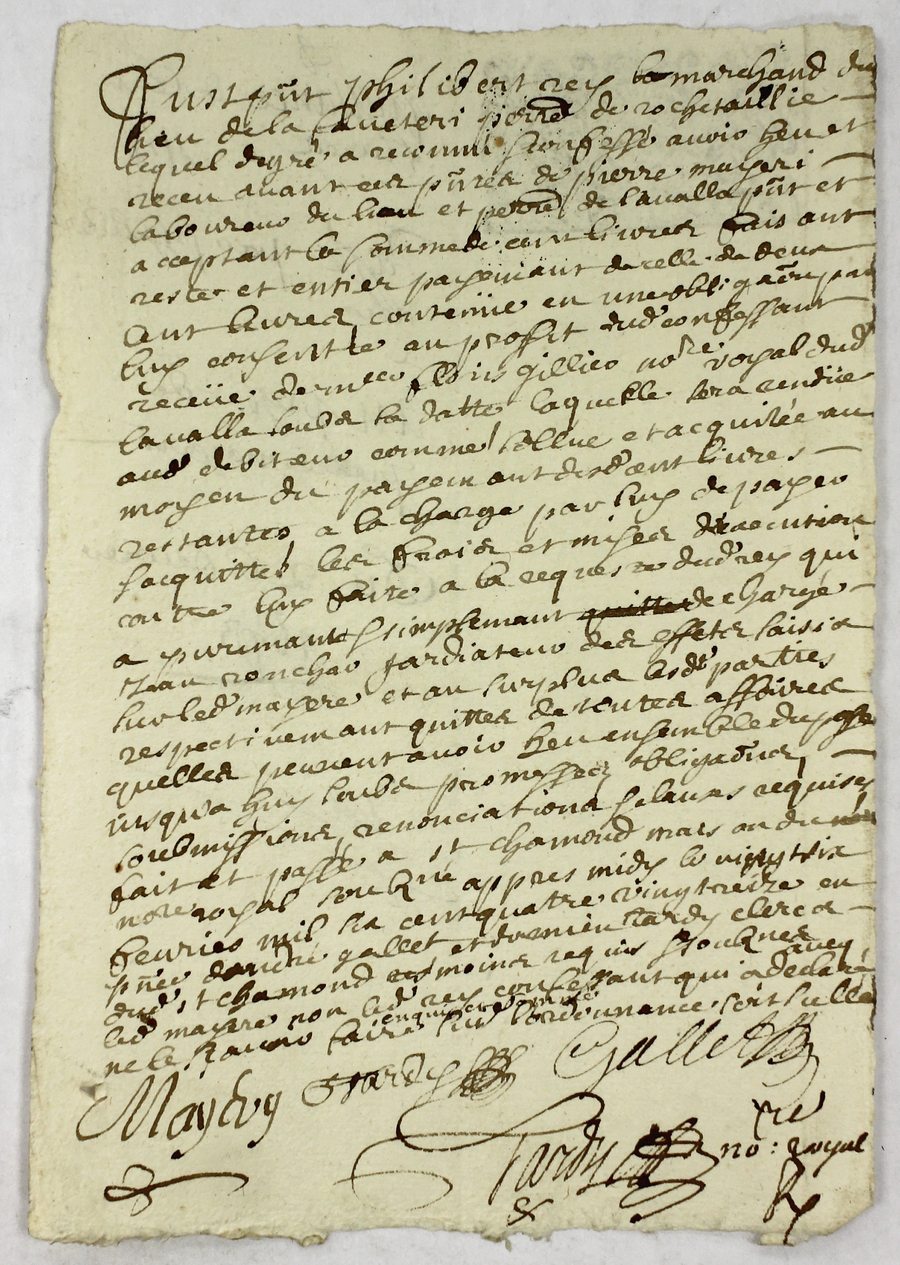 Fust pnt Philibert rey marchand du
lieu de la faveteri perre de rochetaillie
lequel de gré a reconnu & confessé avoir heu et
receu avant ces pntes de pierre mayeri
laboureur du lieu et perre de lavalla pnt et
acceptant la somme de cent livres faisant
reste et entier payemant de celle de deux
cent livres contenüe en une obligaon par
luy consentie au proffit dud confessant
receüe de me gillier nore royal dud
lavalla soubs sa datte laquelle sera rendüe
aud debiteur comme sollue et acquitée au
moyen du payemant desd cent livres
restantes a la charge par luy de payer
sacquitter les frais et mises dexecution
contre luy faite a la requeste dud rey qui
a puremant & simplemant de charge
Jean ronchar gardiateur des effets saisis
sur led mayere et au surplus lesdts parties
respectivemant quittes de toutes affaires
quelles peuvent avoir heu ensemble du passé
jusqua huy soubs promesses obligaons
soubmissions, renonciations & clauses requises
fait et passé a st chamond mais
nore royal soubzné appres midy le vingt six
feurier mil six cent quatre vingt treize en
pnce gallet et damien tardy clercs
dud st chamond tesmoins requis & soubznes avec
led mayere non led rey confessant qui a declaré
ne le scavoir faire enquis et somme sur lordonnance soit sellé
Mayery Tardy Gallet
Tardy nore royal